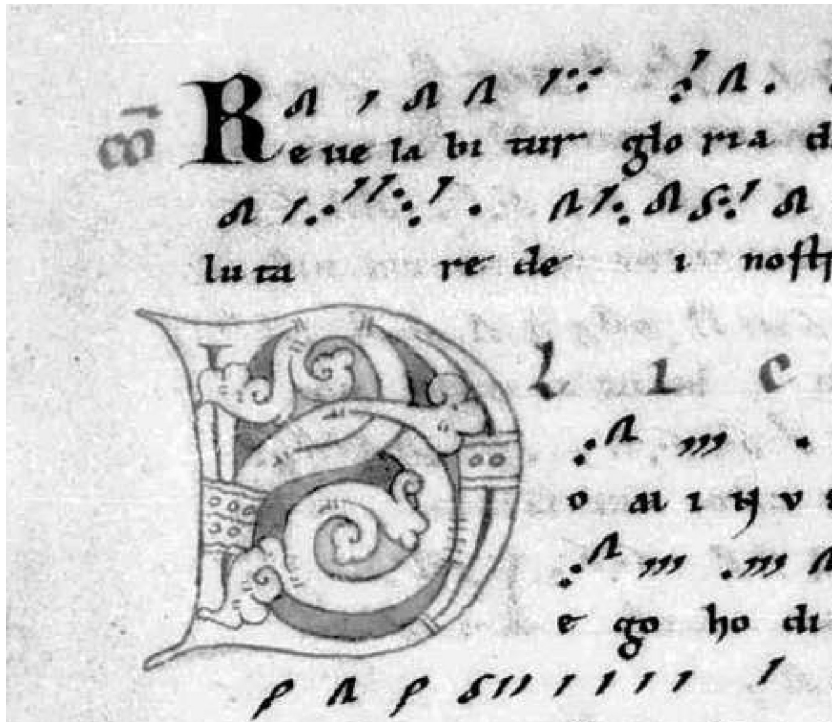 co R eue la bi tur glo ria d
lu ta re de i nost
D L I C
o mi nus
e go ho di